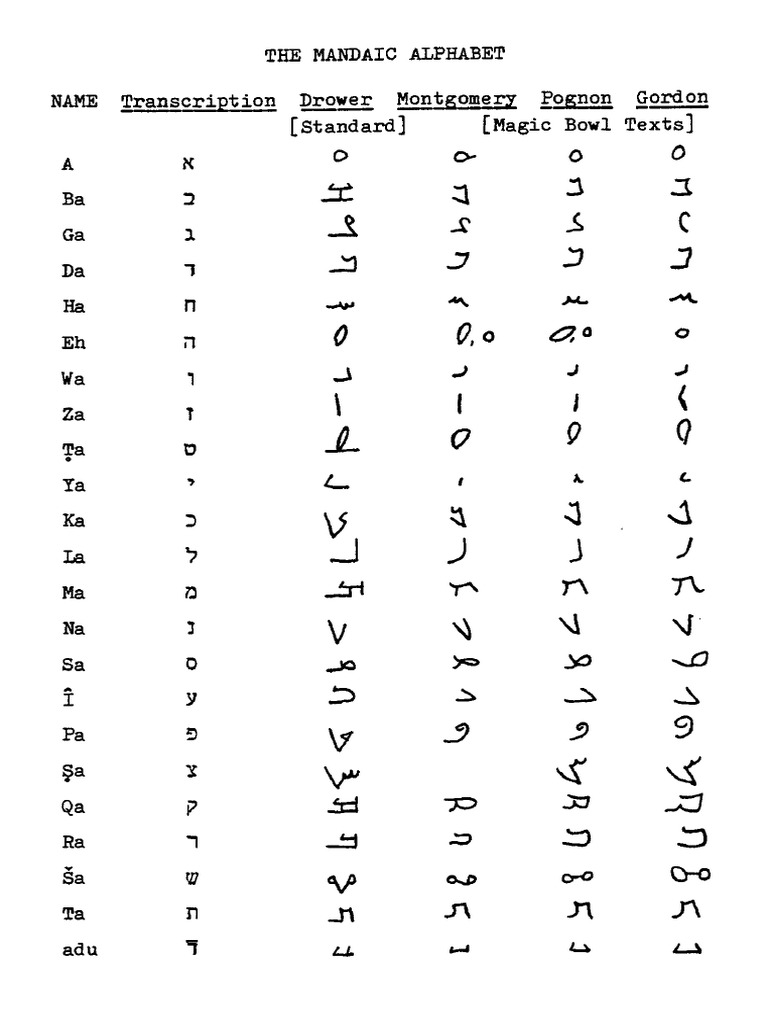 THE MANDAIC ALPHABET
NAME Transcription Drower Montgomery Pognon Gordon
[Standard] [Magic Bowl Texts]
A א ࡀ ࡀ ࡀ ࡀ
Ba ב ࡁ ࡁ ࡁ ࡁ
Ga ג ࡂ ࡂ ࡂ ࡂ
Da ד ࡃ ࡃ ࡃ ࡃ
Ha ח ࡄ ࡄ ࡄ ࡄ
Eh ה ࡇ ࡇ, ࡇ ࡇ, ࡇ ࡇ
Wa ו ࡅ ࡅ ࡅ ࡅ
Za ז ࡆ ࡆ ࡆ ࡆ
Ṭa ט ࡈ ࡈ ࡈ ࡈ
Ya י ࡉ ࡉ ࡉ ࡉ
Ka כ ࡊ ࡊ ࡊ ࡊ
La ל ࡋ ࡋ ࡋ ࡋ
Ma מ ࡌ ࡌ ࡌ ࡌ
Na נ ࡍ ࡍ ࡍ ࡍ
Sa ס ࡎ ࡎ ࡎ ࡎ
Î ע ࡏ ࡏ ࡏ ࡏ
Pa פ ࡐ ࡐ ࡐ ࡐ
Ṣa צ ࡑ ࡑ ࡑ
Qa ק ࡒ ࡒ ࡒ ࡒ
Ra ר ࡓ ࡓ ࡓ ࡓ
Ša ש ࡔ ࡔ ࡔ ࡔ
Ta ת ࡕ ࡕ ࡕ ࡕ
adu ד̄ ࡖ ࡖ ࡖ ࡖ